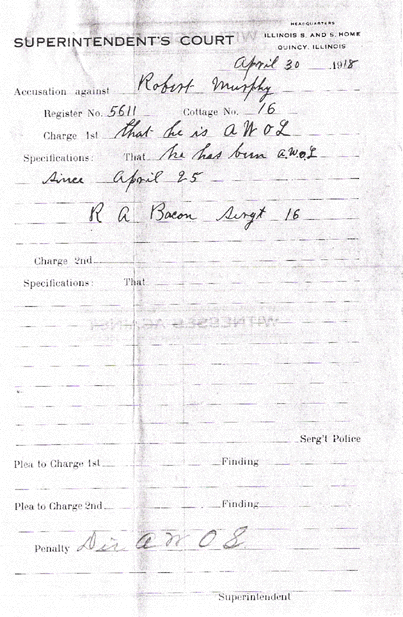 HEADQUARTERS
SUPERINTENDENT'S COURT
ILLINOIS S. AND S. HOME
QUINCY, ILLINOIS
April 30 1918
Accusation against Robert Murphy
Register No. 5611 Cottage No. 16
Charge 1st that he is A W O L
Specifications: That he has been a.w.o.l
since April 25
R A Bacon Sergt 16
Charge 2nd
Specifications: That
WITNESSES AGAINST
Serg't Police
Plea to Charge 1st Finding
Plea to Charge 2nd Finding
Penalty Dis A W O L
Superintendent